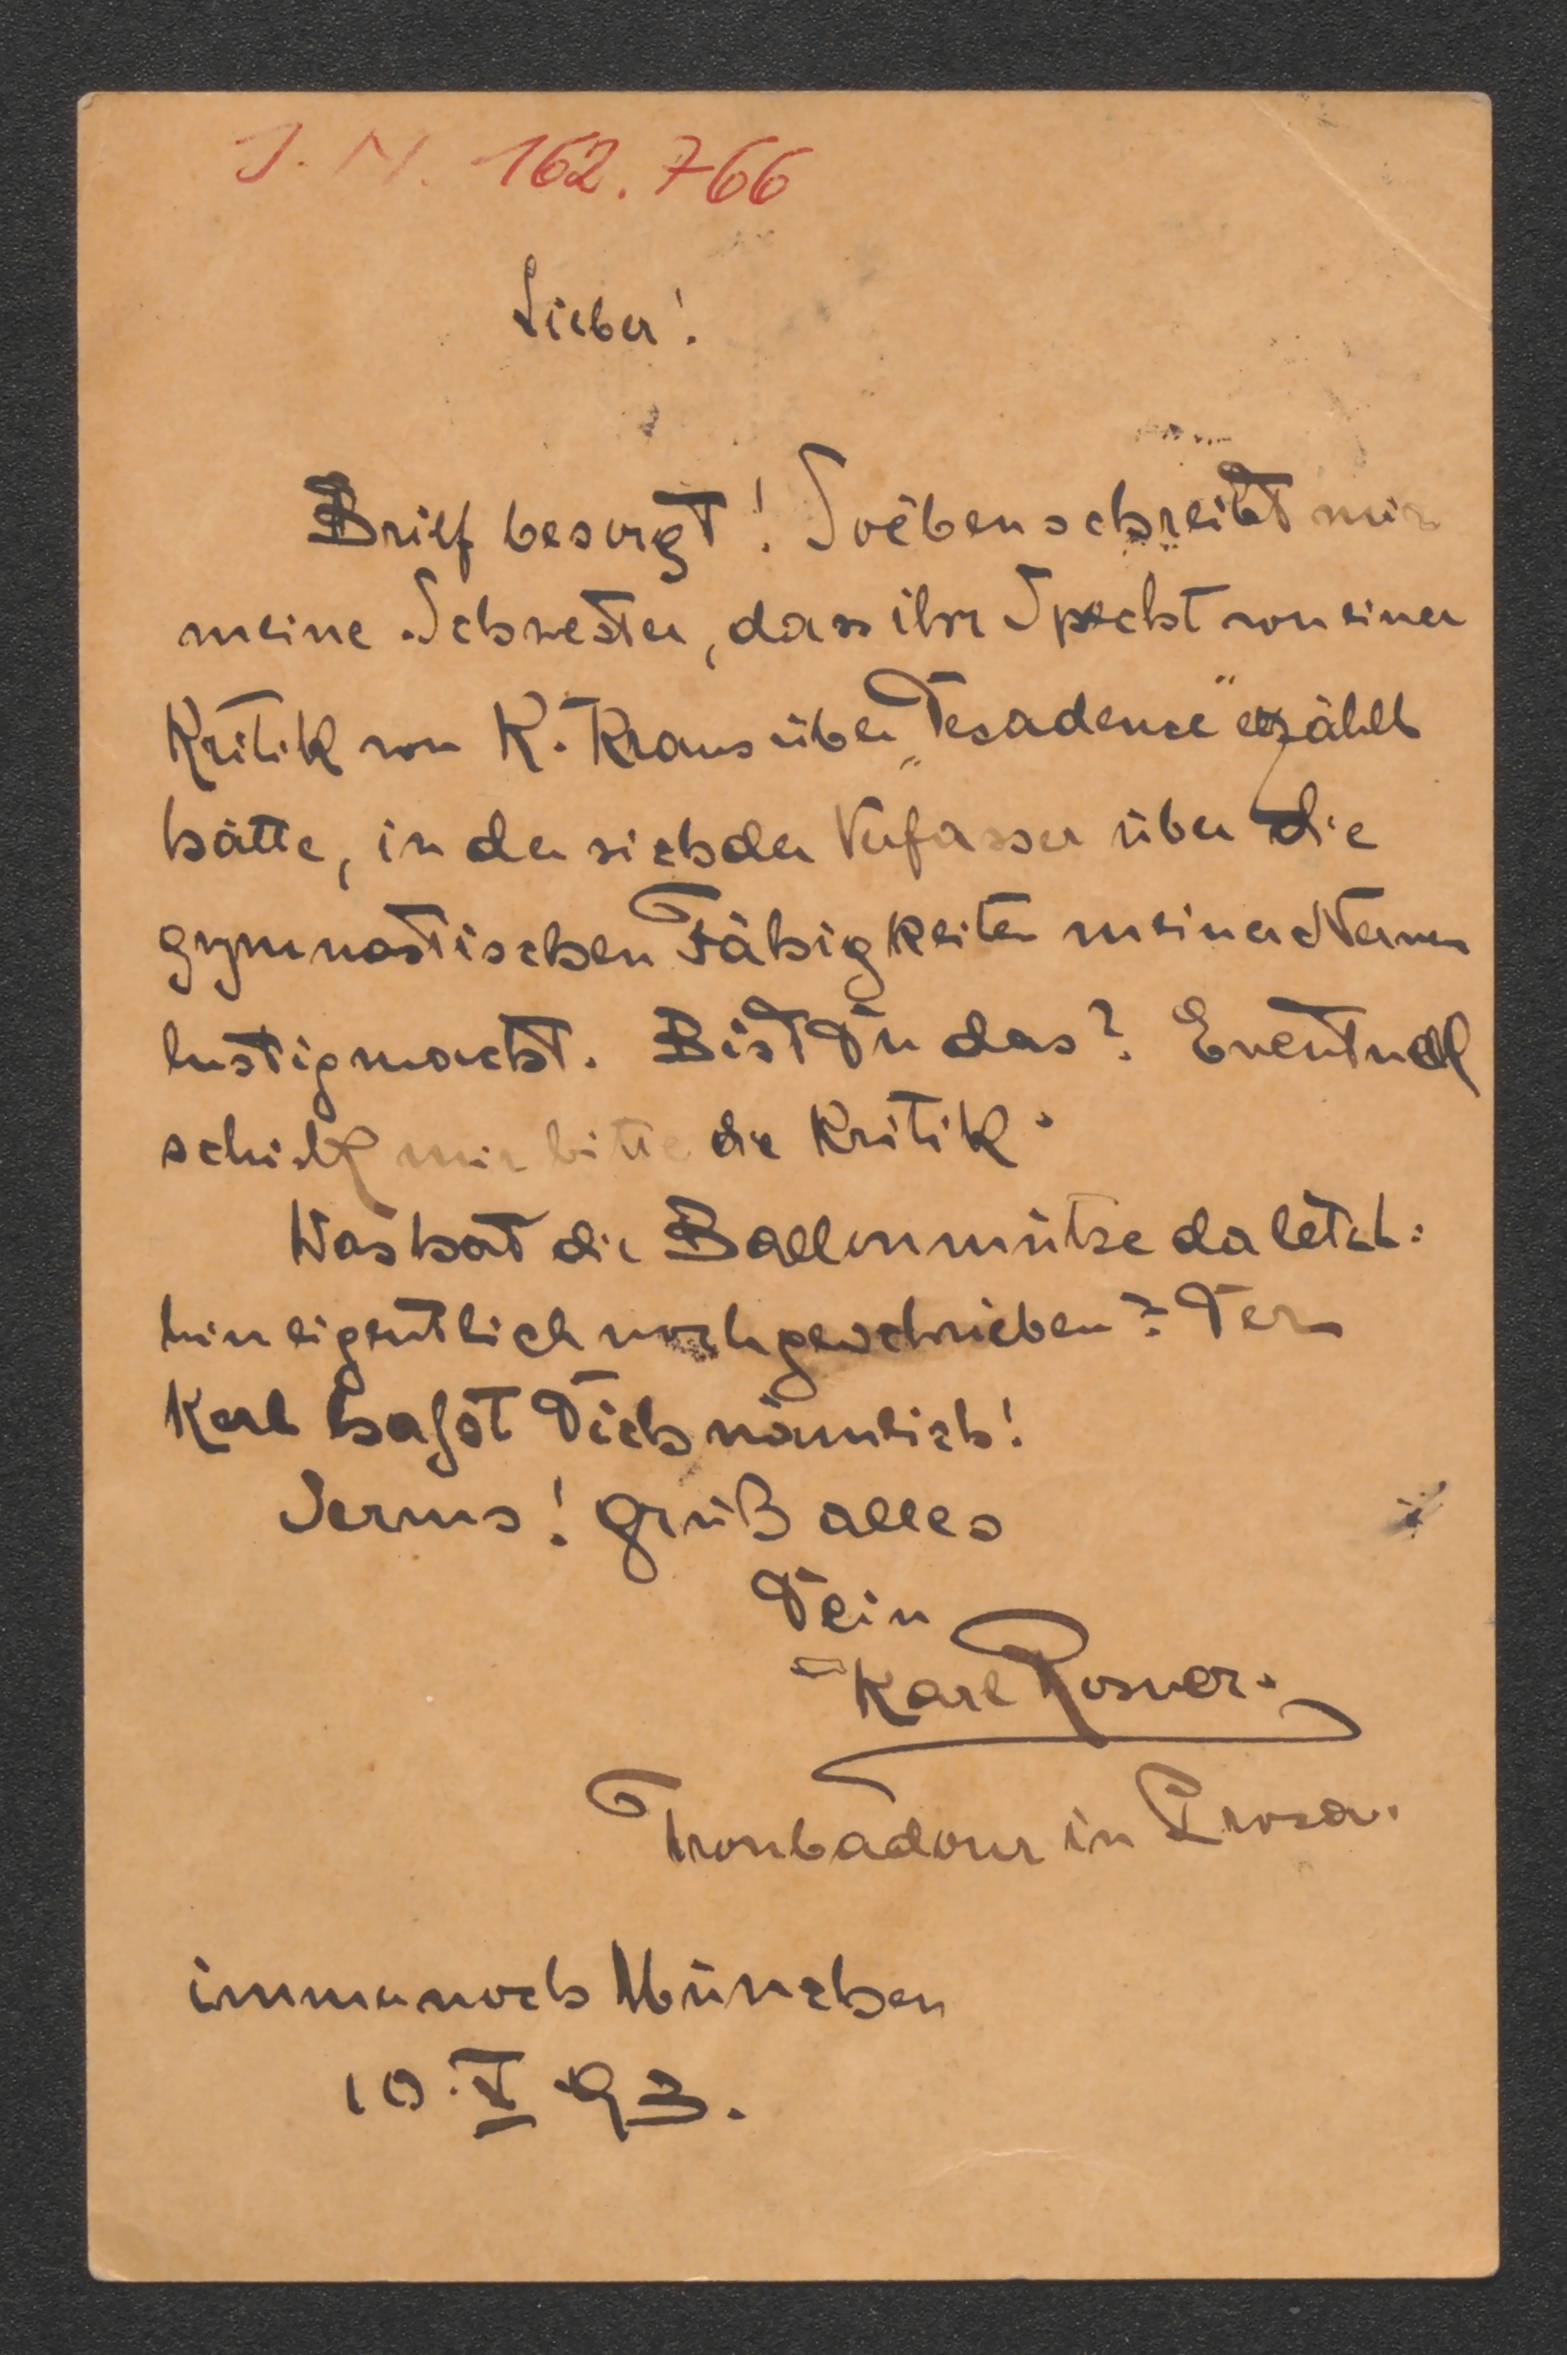 J. N. 162.766
Lieber!
Brief besorgt! Soeben schreibt mir
meine Schwester, dass ihr Specht von einer
Kritik von K. Kraus über „Decadence" erzählt
hätte, in der sich der Verfasser über die
gymnastischen Fähigkeiten meiner Nerven
lustig macht. Bist Du das? Eventuell
schick mir bitte die Kritik.
Was hat die Ballonmütze da letzt:
hin eigentlich noch geschrieben? Der
Kerl haßt Dich nämlich!
Servus! Grüß alles
Dein
Karl Rosner.
Troubadour in Prosa.
immer noch München
10. V 93.